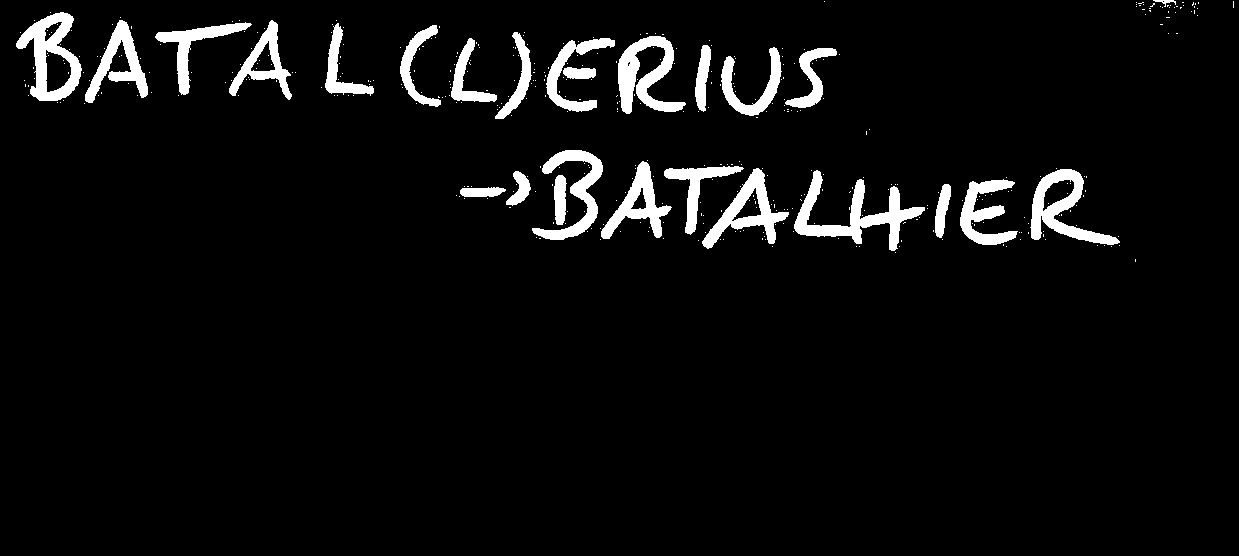 BATAL(L)ERIUS
→BATALHIER